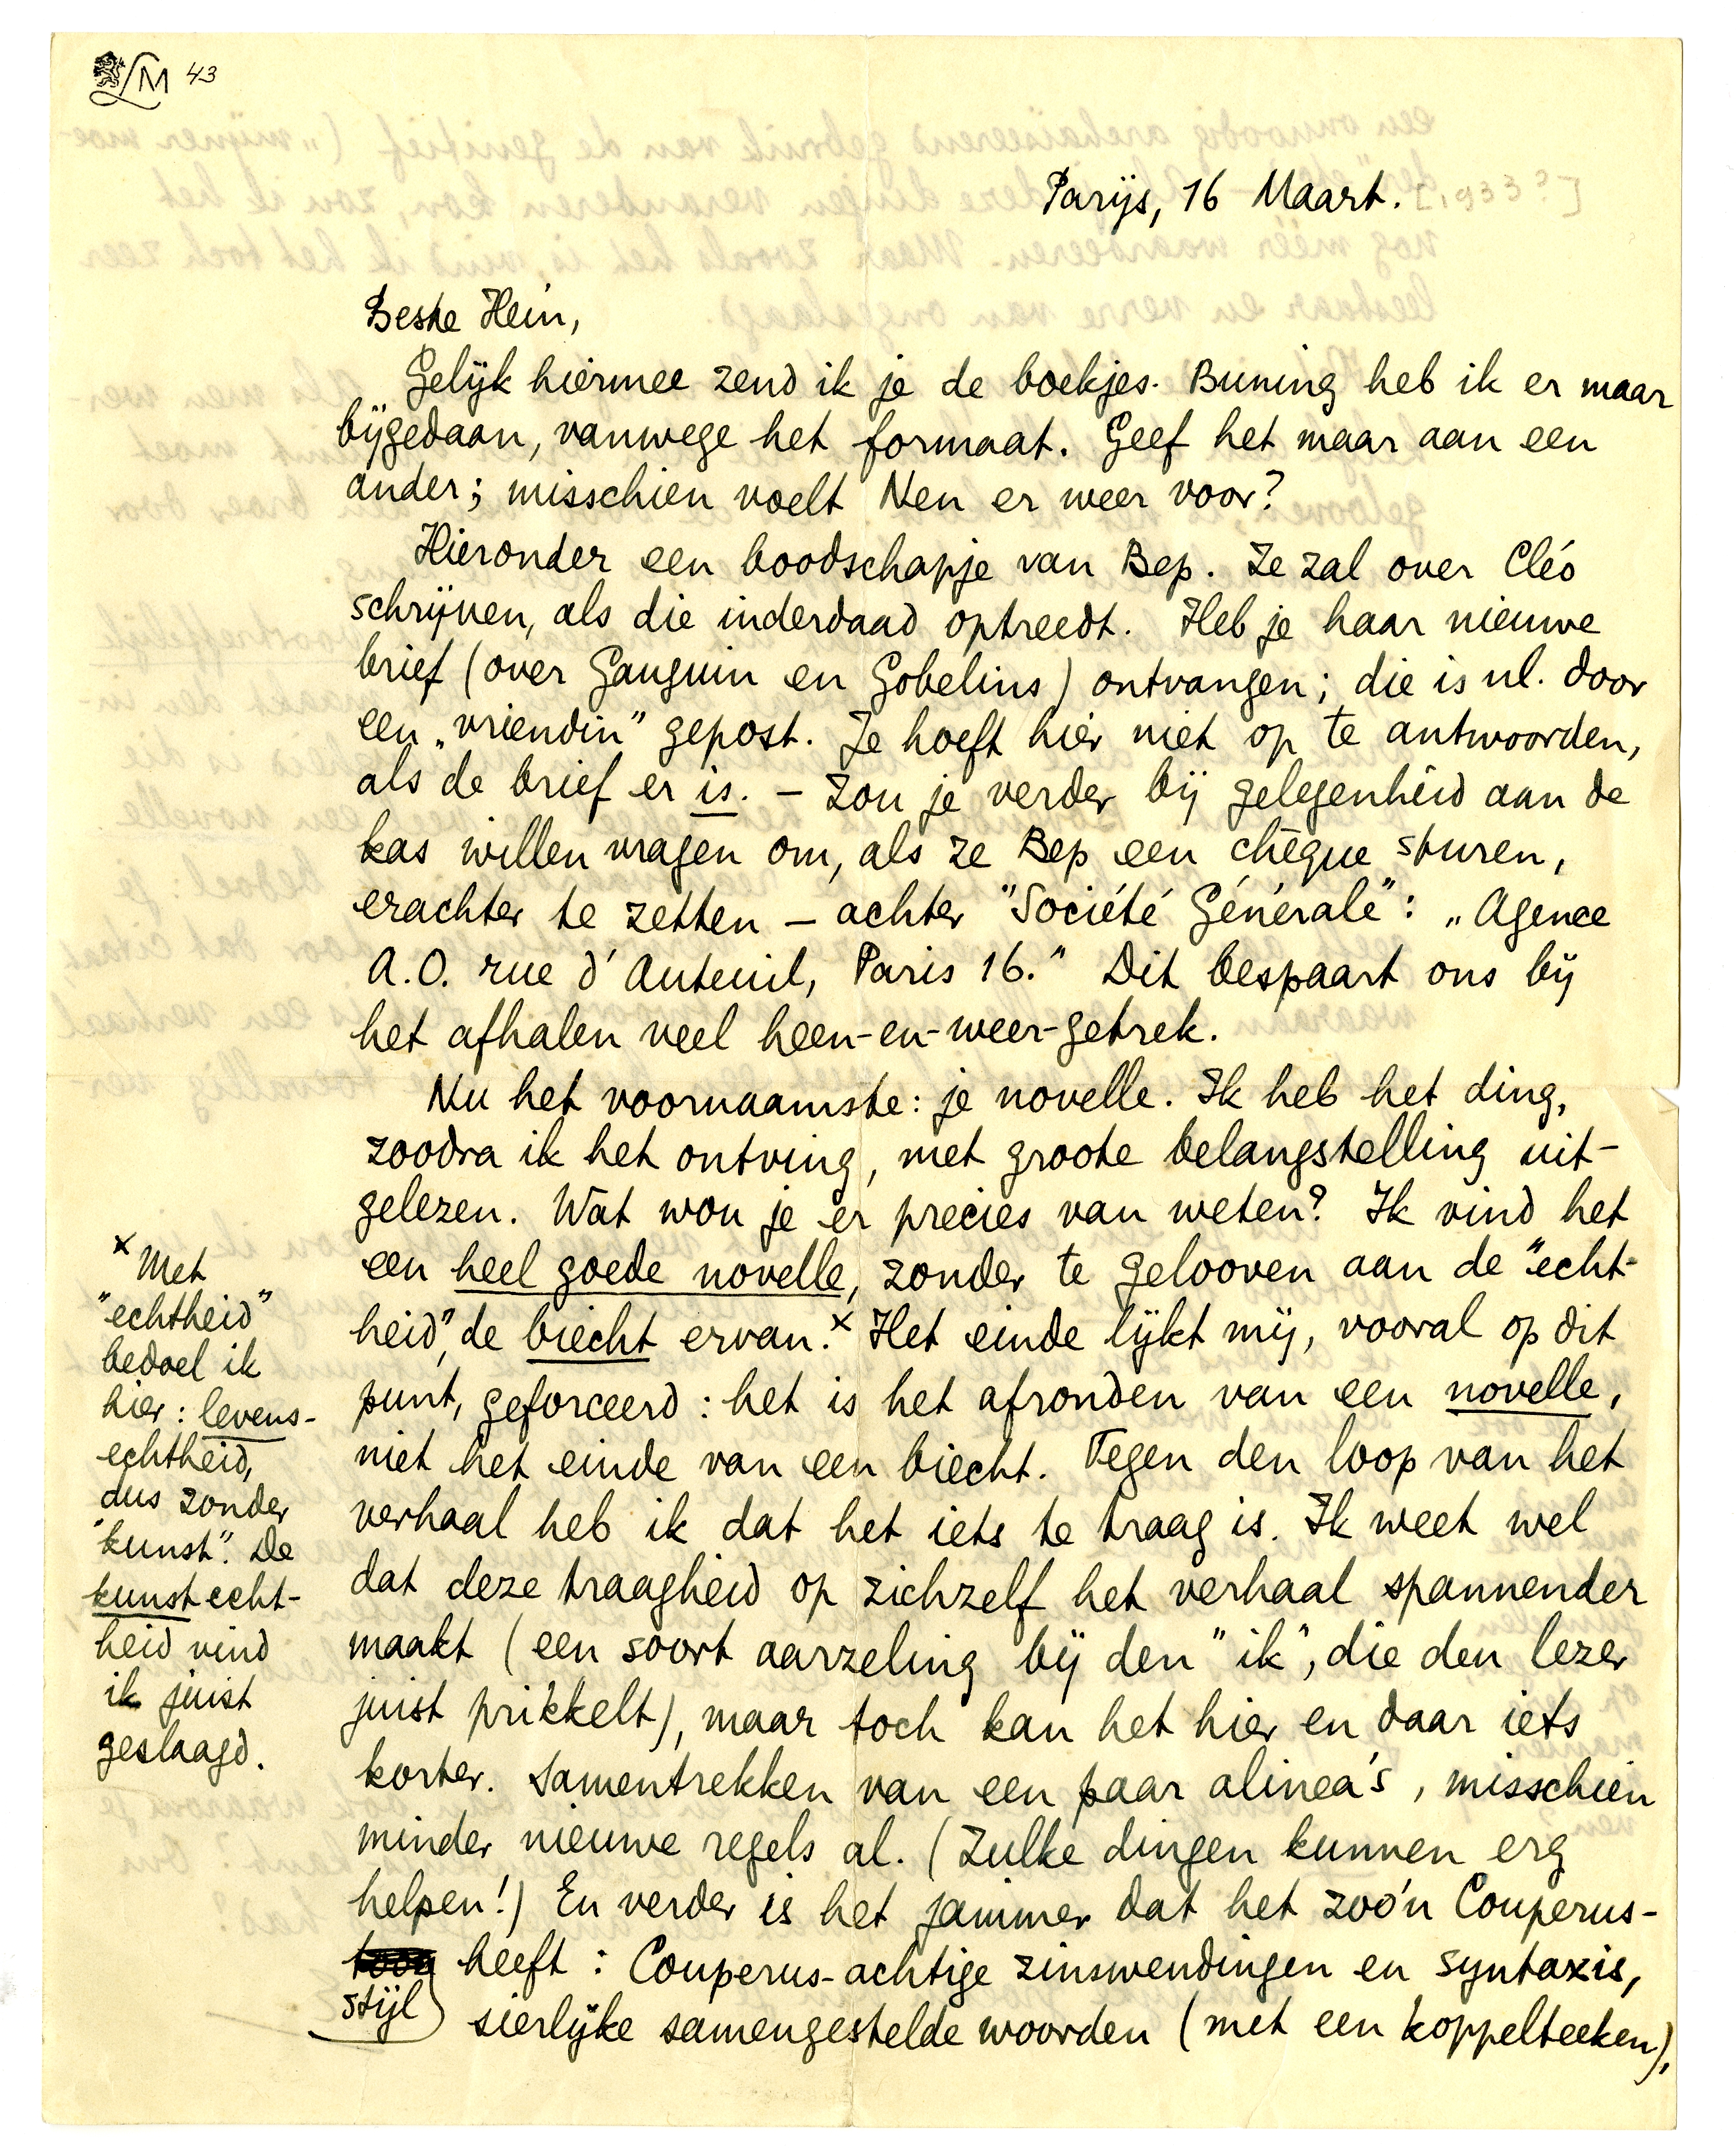 LM 43
Parijs, 16 Maart. [1933?]
Beste Hein,
Gelijk hiermee zend ik je de boekjes. Buning heb ik er maar
bijgedaan, vanwege het formaat. Geef het maar aan een
ander; misschien voelt Nen er weer voor?
Hieronder een boodschapje van Bep. Ze zal over Cléo
schrijven, als die inderdaad optreedt. Heb je haar nieuwe
brief (over Gauguin en Gobelins) ontvangen; die is nl. door
een „vriendin” gepost. Je hoeft hier niet op te antwoorden,
als de brief er is. – Zou je verder bij gelegenheid aan de
kas willen vragen om, als ze Bep een chèque sturen,
erachter te zetten – achter "Société Générale": „Agence
A.O. rue d'Auteuil, Paris 16.” Dit bespaart ons bij
het afhalen veel heen-en-weer-getrek.
Nu het voornaamste: je novelle. Ik heb het ding,
zoodra ik het ontving, met groote belangstelling uit-
gelezen. Wat wou je er precies van weten? Ik vind het
een heel goede novelle, zonder te gelooven aan de "echt-
heid", de biecht ervan.x Het einde lijkt mij, vooral op dit
punt, geforceerd: het is het afronden van een novelle,
niet het einde van een biecht. Tegen den loop van het
verhaal heb ik dat het iets te traag is. Ik weet wel
dat deze traagheid op zichzelf het verhaal spannender
maakt (een soort aarzeling bij den "ik", die den lezer
juist prikkelt), maar toch kan het hier en daar iets
korter. Samentrekken van een paar alinea's, misschien
minder nieuwe regels al. (Zulke dingen kunnen erg
helpen!) En verder is het jammer dat het zoo'n Couperus-
toon heeft: Couperus-achtige zinswendingen en syntaxis,
stijl sierlijke samengestelde woorden (met een koppelteeken),
x Met
"echtheid"
bedoel ik
hier: levens-
echtheid,
dus zonder
"kunst". De
kunstecht-
heid vind
ik juist
geslaagd.